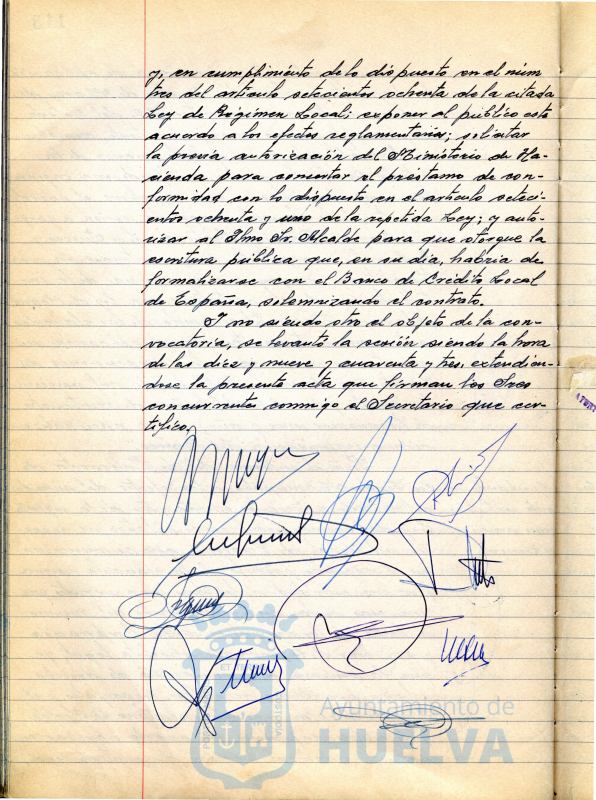 y, en cumplimiento de lo dispuesto en el núm
tres del artículo setecientos ochenta de la citada
Ley de Régimen Local; exponer al público este
acuerdo a los efectos reglamentarios; solicitar
la previa autorización del Ministerio de Ha-
cienda para concertar el préstamo de con-
formidad con lo dispuesto en el artículo seteci-
entos ochenta y uno de la repetida Ley; y auto-
rizar al Ilmo Sr. Alcalde para que otorgue la
escritura pública que, en su día, habría de
formalizarse con el Banco de Crédito Local
de España, solemnizando el contrato.
Y no siendo otro el objeto de la con-
vocatoria, se levantó la sesión siendo la hora
de las diez y nueve y cuarenta y tres, extendien-
dose la presente acta que firman los Sres
concurrentes conmigo el Secretario que cer-
tifico.
Ayuntamiento de
HUELVA